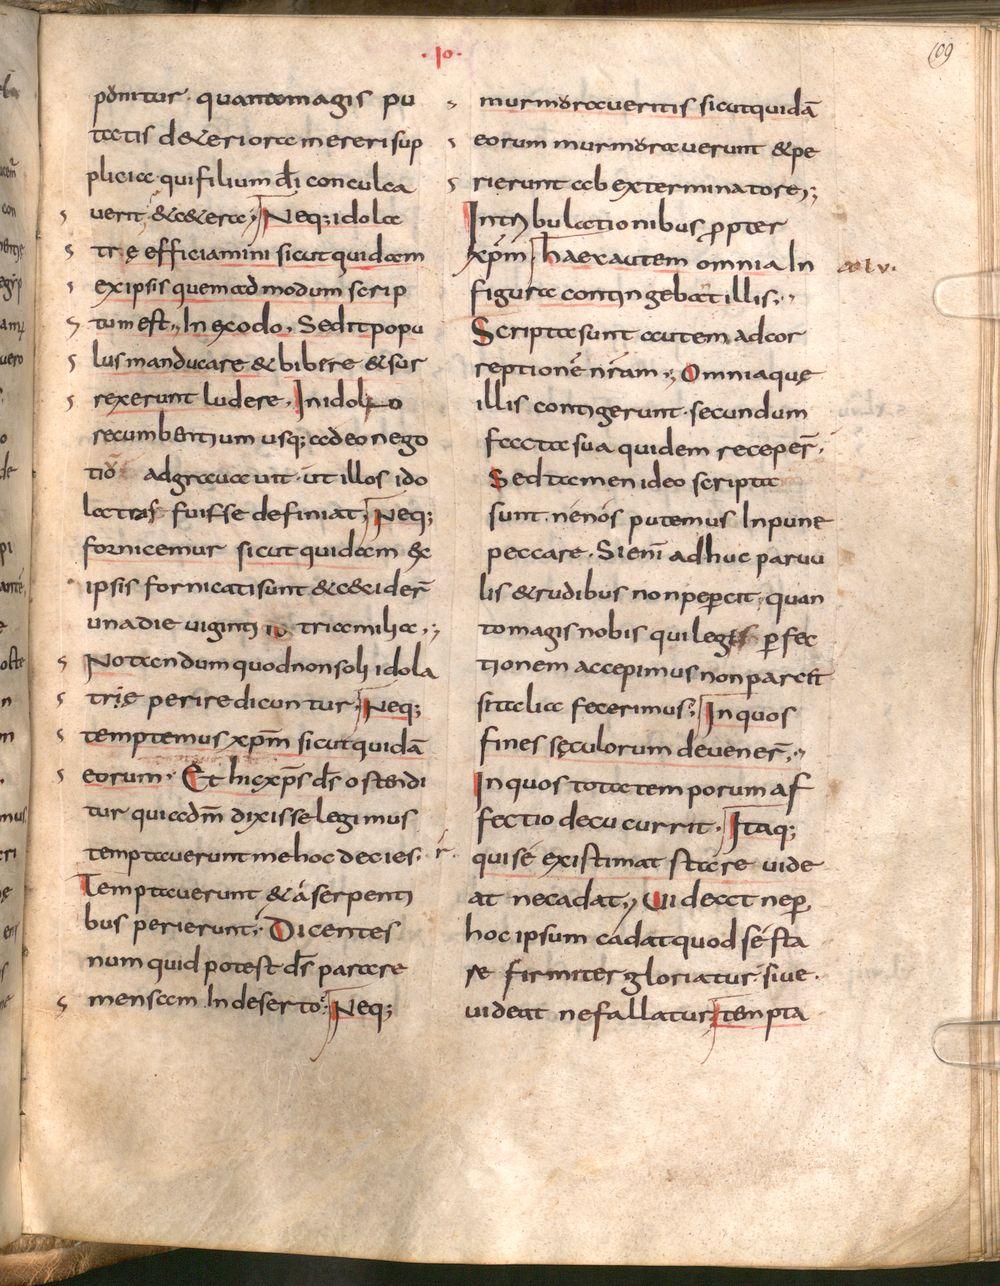 ·10·
109
ponitur· quantomagis pu
tatis d&eriora mereri sup
plicia qui filium dī conculca
uerit, &c&era; Neq; idola
trę efficiamini sicut quidam
ex ipsis quemadmodum scrip
tum est; In exodo, Sedit popu
lus manducare & bibere & sur
rexerunt ludere, In idolio
recumbentium usq; adeo nego
tiū adgrauauit· ut illos ido
latras fuisse definiat, Neq;
fornicemur sicut quidam ex
ipsis fornicati sunt & c&iderr̄
una die uiginti tria milia;
Notandum quod non soli idola
trię perire dicuntur; Neq;
temptemus xpm̄ sicut quidā
eorum· Et hic xps̄ ds̄ ostendi
tur qui adm̄ dixisse legimus
temptauerunt me hoc decies·
Temptauerunt & a serpenti
bus perierunt; Dicentes
num quid potest ds̄ parare
mensam In deserto; Neq;
murmoraueritis sicut quidā
eorum murmorauerunt & pe
rierunt ab exterminatore;
In tribulationibus propter
xpm̄, haex autem omnia In
figura contingebant illis;
Scripta sunt autem ad cor
reptionē nr̄am; Omnia quę
illis contigerunt· secundum
facta sua quidem receper̄;
Sed tamen ideo scripta
sunt· ne nos putemus Inpune
peccare· Si eni̅ adhuc paruu
lis & rudibus non pepercit, quan
to magis nobis qui legis perfec
tionem accepimus non parcit
si talia fecerimus; In quos
fines sęculorum deuener̄;
In quos tota temporum af
fectio decucurrit· Itaq;
qui se existimat stare uide
at ne cadat; Uideat ne per
hoc ipsum cadat quod se sta
re firmiter gloriatur· siue·
uideat ne fallatur; tempta